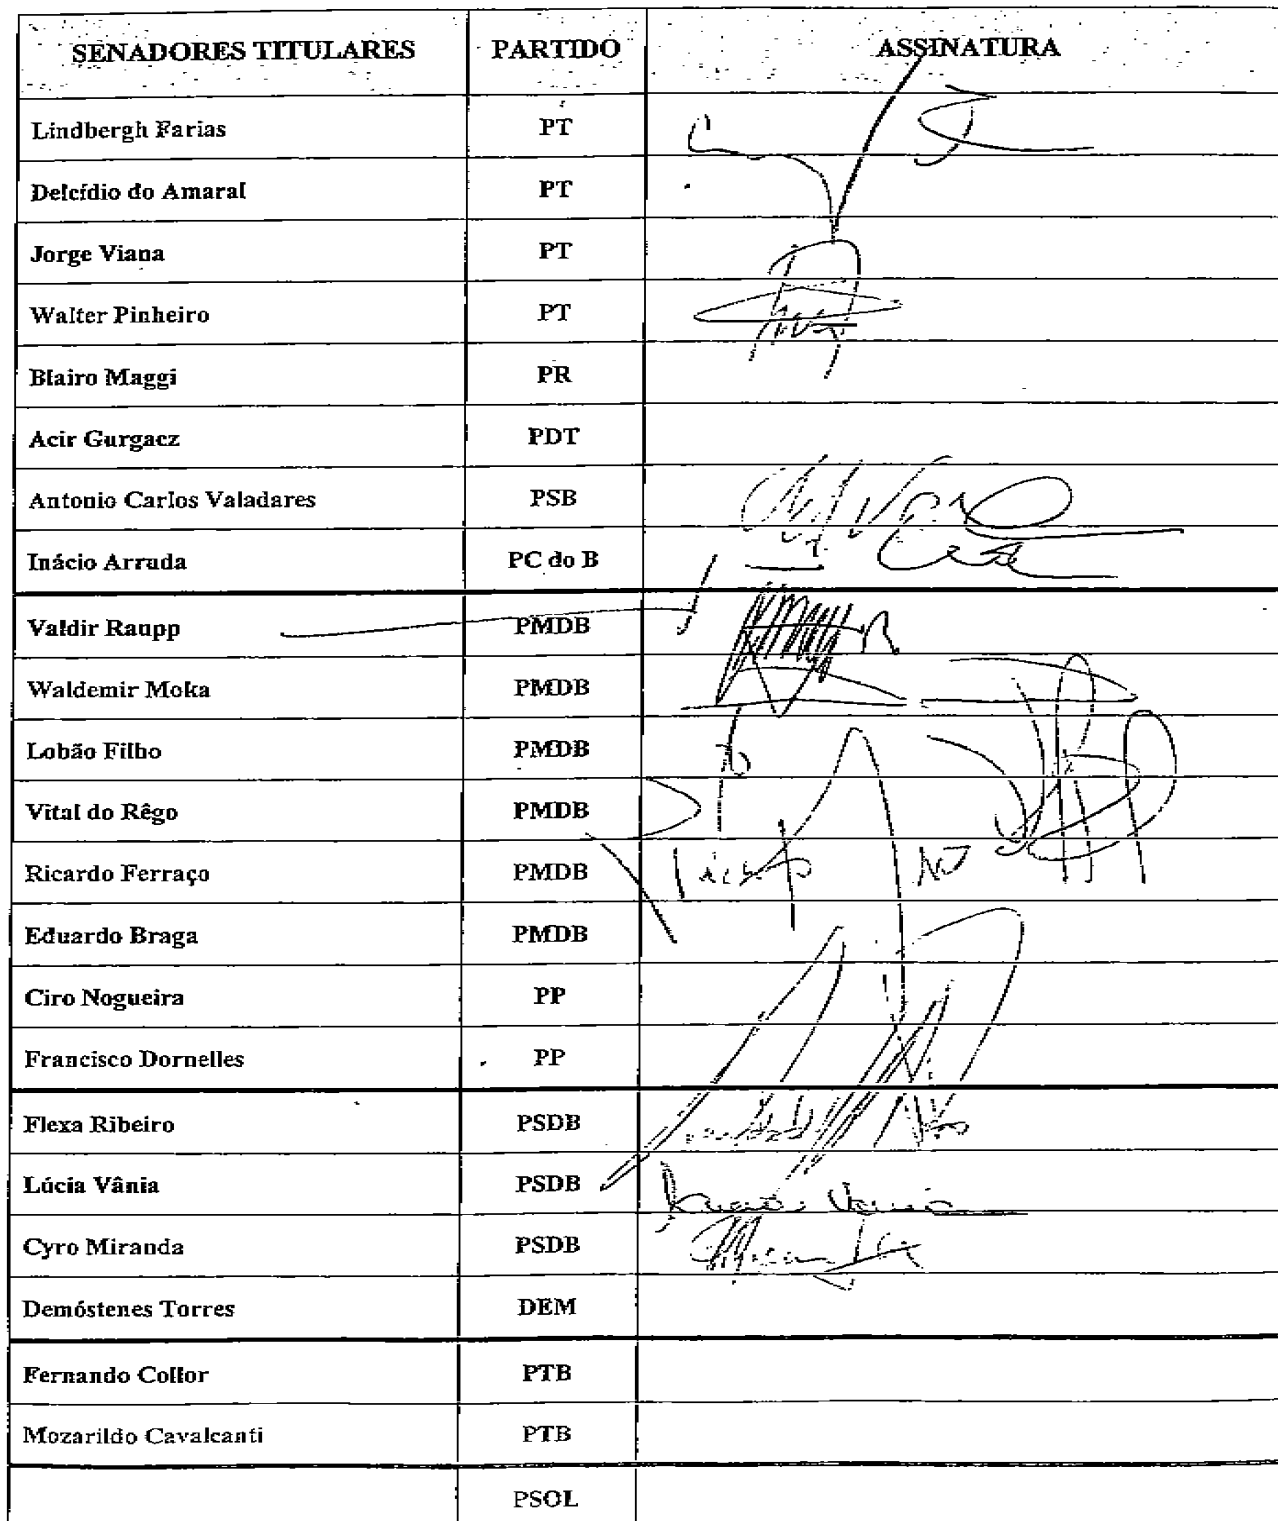 SENADORES TITULARES PARTIDO ASSINATURA
Lindbergh Farias PT
Delcídio do Amaral PT
Jorge Viana PT
Walter Pinheiro PT
Blairo Maggi PR
Acir Gurgacz PDT
Antonio Carlos Valadares PSB
Inácio Arruda PC do B
Valdir Raupp PMDB
Waldemir Moka PMDB
Lobão Filho PMDB
Vital do Rêgo PMDB
Ricardo Ferraço PMDB
Eduardo Braga PMDB
Ciro Nogueira PP
Francisco Dornelles PP
Flexa Ribeiro PSDB
Lúcia Vânia PSDB
Cyro Miranda PSDB
Demóstenes Torres DEM
Fernando Collor PTB
Mozarildo Cavalcanti PTB
PSOL